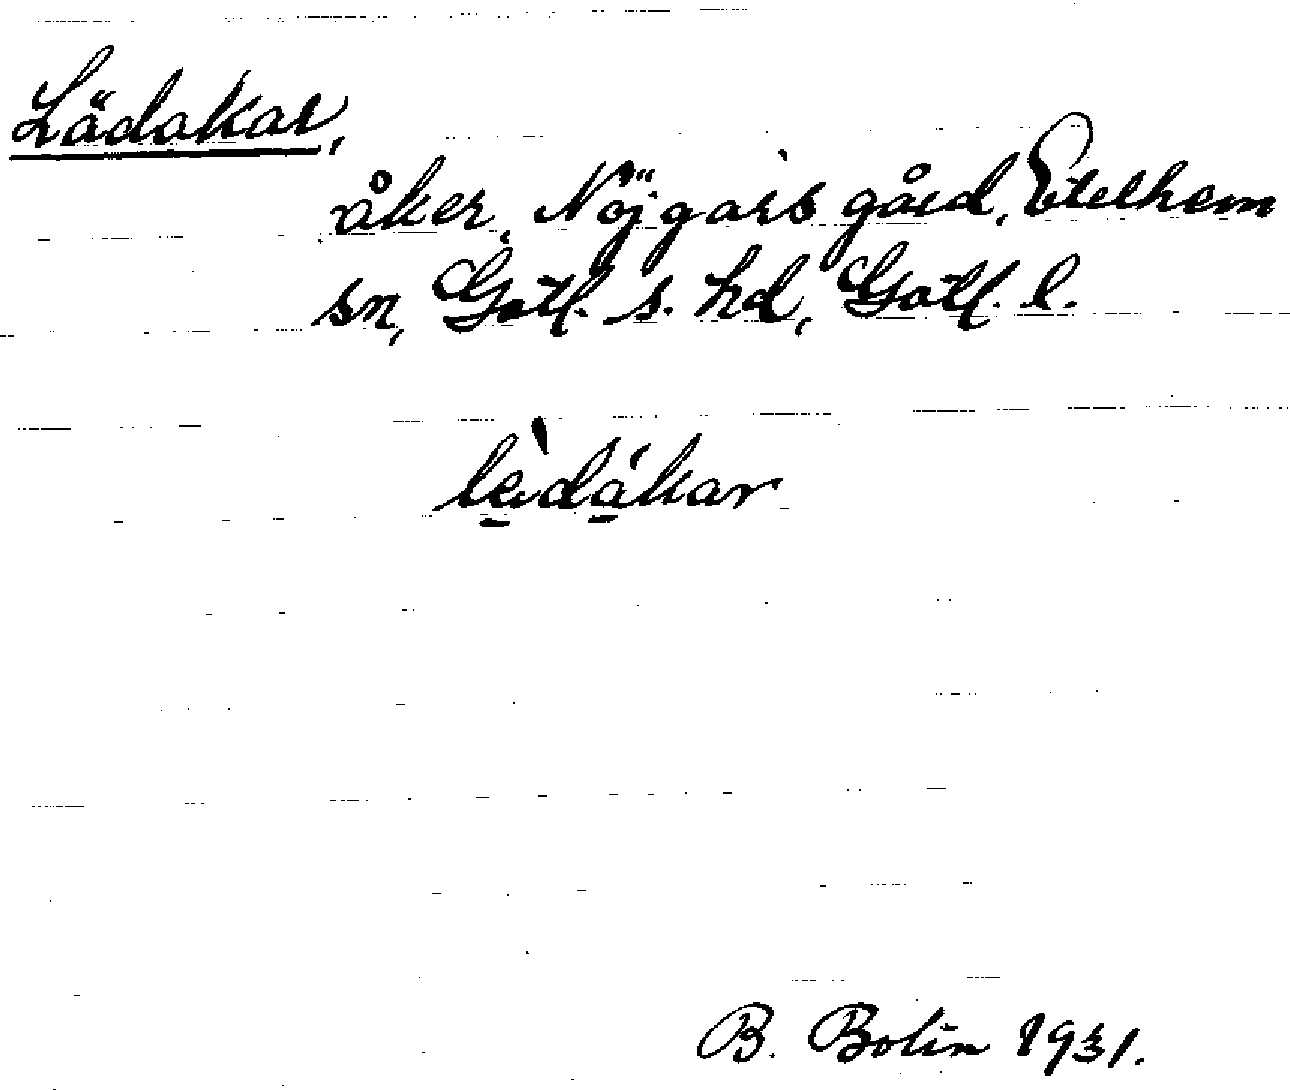 Lädakar,
åker, Nöjgars gård, Etelhem
sn, Gotl. s. hd, Gotl. l.
lèdákar
B. Bolin 1931.